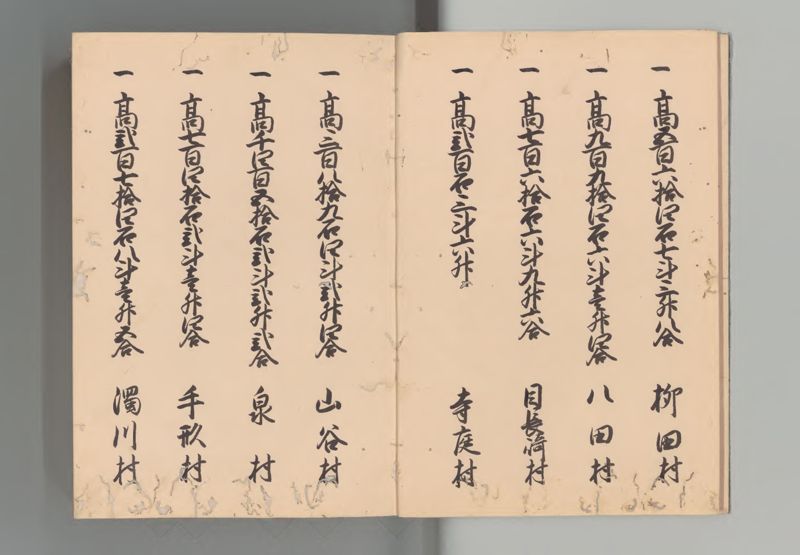 一高五百六拾四石七斗三升八合 柳田村
一高九百九拾四石六斗壱升四合 八田村
一高七百六拾石六斗九升六合 目長崎村
一高弐百石三斗六升 寺庭村
一高三百八拾九石四斗弐升四合 山谷村
一高千四百五拾石弐斗弐升弐合 泉村
一高七百四拾石弐斗壱升四合 手形村
一高弐百七拾四石八斗壱升五合 濁川村